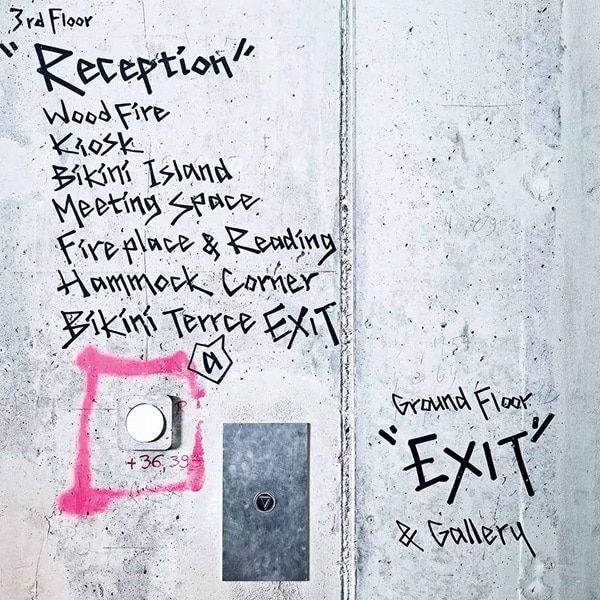 3rd Floor
"Reception"
Wood Fire
Kiosk
Bikini Island
Meeting Space
Fireplace & Reading
Hammock Corner
Bikini Terrce EXIT
a
+36,393
Ground Floor
"EXIT"
& Gallery